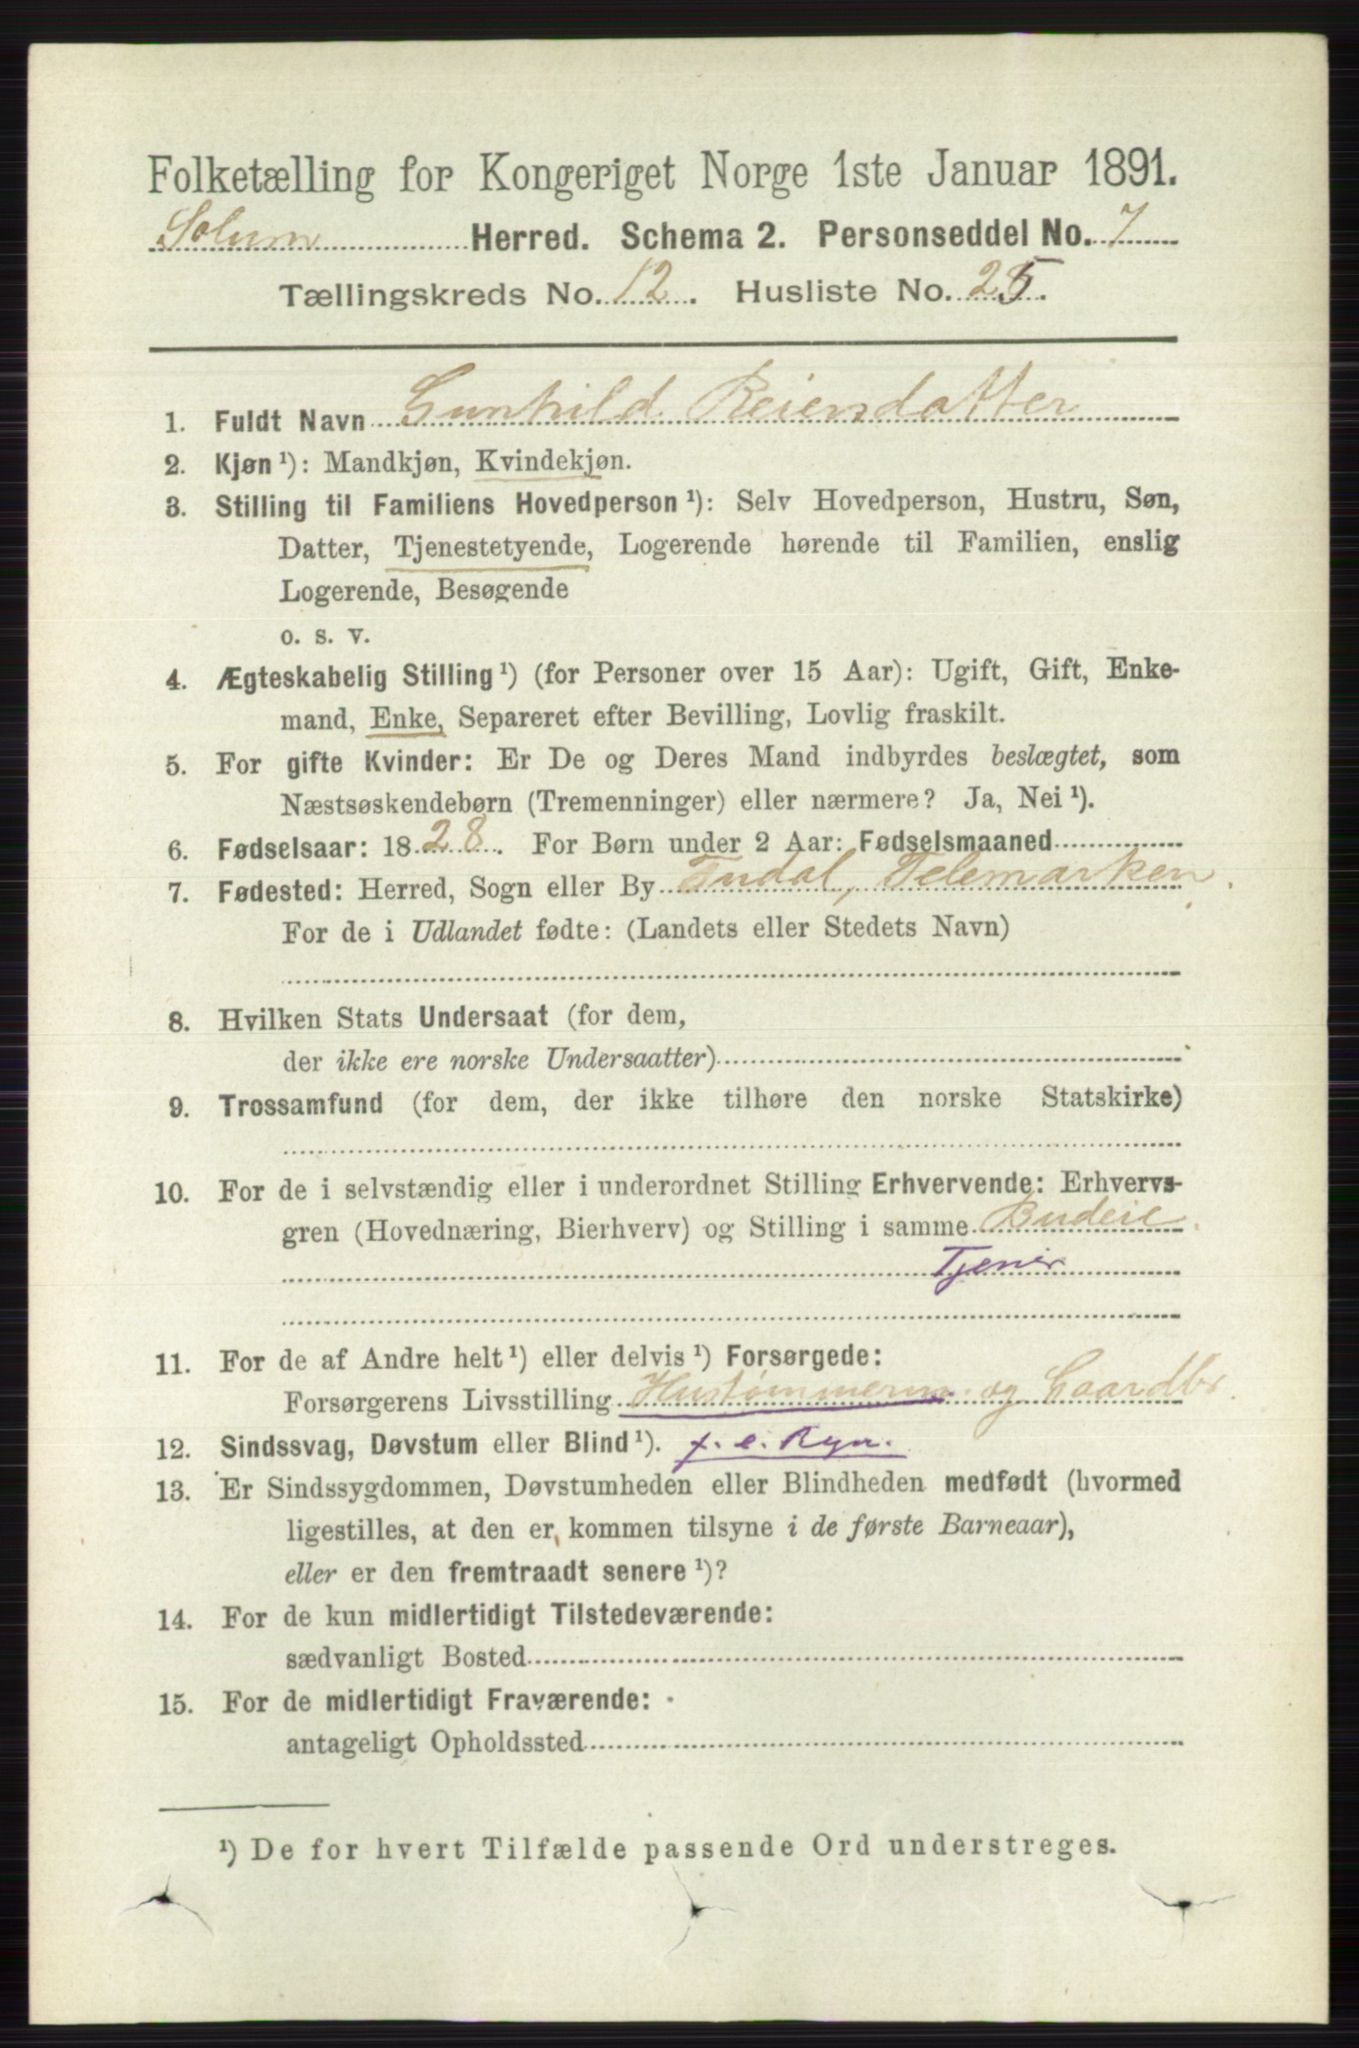 Folketælling for Kongeriget Norge 1ste Januar 1891.
Solum Herred. Schema 2. Personseddel No. 7
Tællingskreds No. 12. Husliste No. 25.
1. Fuldt Navn Gunhild Reiersdatter
2. Kjøn ¹): Mandkjøn, Kvindekjøn.
3. Stilling til Familiens Hovedperson ¹): Selv Hovedperson, Hustru, Søn,
Datter, Tjenestetyende, Logerende hørende til Familien, enslig
Logerende, Besøgende
o. s. v.
4. Ægteskabelig Stilling ¹) (for Personer over 15 Aar): Ugift, Gift, Enke-
mand, Enke, Separeret efter Bevilling, Lovlig fraskilt.
5. For gifte Kvinder: Er De og Deres Mand indbyrdes beslægtet, som
Næstsøskendebørn (Tremenninger) eller nærmere? Ja, Nei ¹).
6. Fødselsaar: 1828. For Børn under 2 Aar: Fødselsmaaned
7. Fødested: Herred, Sogn eller By Tudal, Telemarken.
For de i Udlandet fødte: (Landets eller Stedets Navn)
8. Hvilken Stats Undersaat (for dem,
der ikke ere norske Undersaatter)
9. Trossamfund (for dem, der ikke tilhøre den norske Statskirke)
10. For de i selvstændig eller i underordnet Stilling Erhvervende: Erhvervs-
gren (Hovednæring, Bierhverv) og Stilling i samme Budeie.
Tjener
11. For de af Andre helt ¹) eller delvis ¹) Forsørgede:
Forsørgerens Livsstilling Hustømmerm. og Gaardbr.
12. Sindssvag, Døvstum eller Blind ¹). f. e. Regn.
13. Er Sindssygdommen, Døvstumheden eller Blindheden medfødt (hvormed
ligestilles, at den er kommen tilsyne i de første Barneaar),
eller er den fremtraadt senere ¹)?
14. For de kun midlertidigt Tilstedeværende:
sædvanligt Bosted
15. For de midlertidigt Fraværende:
antageligt Opholdssted
¹) De for hvert Tilfælde passende Ord understreges.